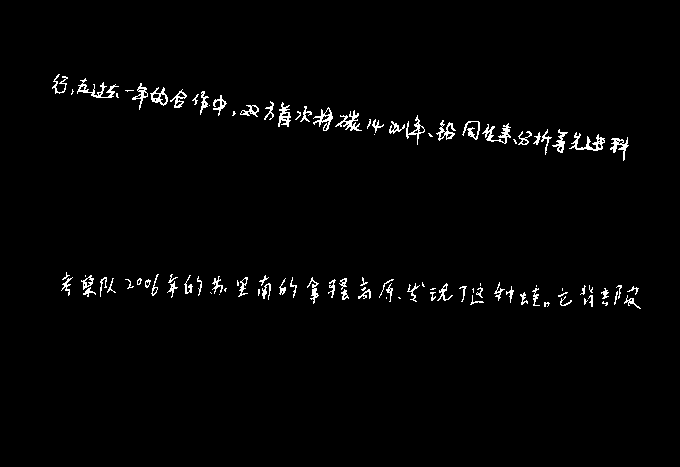 行,在过去一年的合作中,双方首次将碳14测年、铅同位素分析等先进科
考察队2006年的苏里南的拿骚高原发现了这种蛙。它背部皮